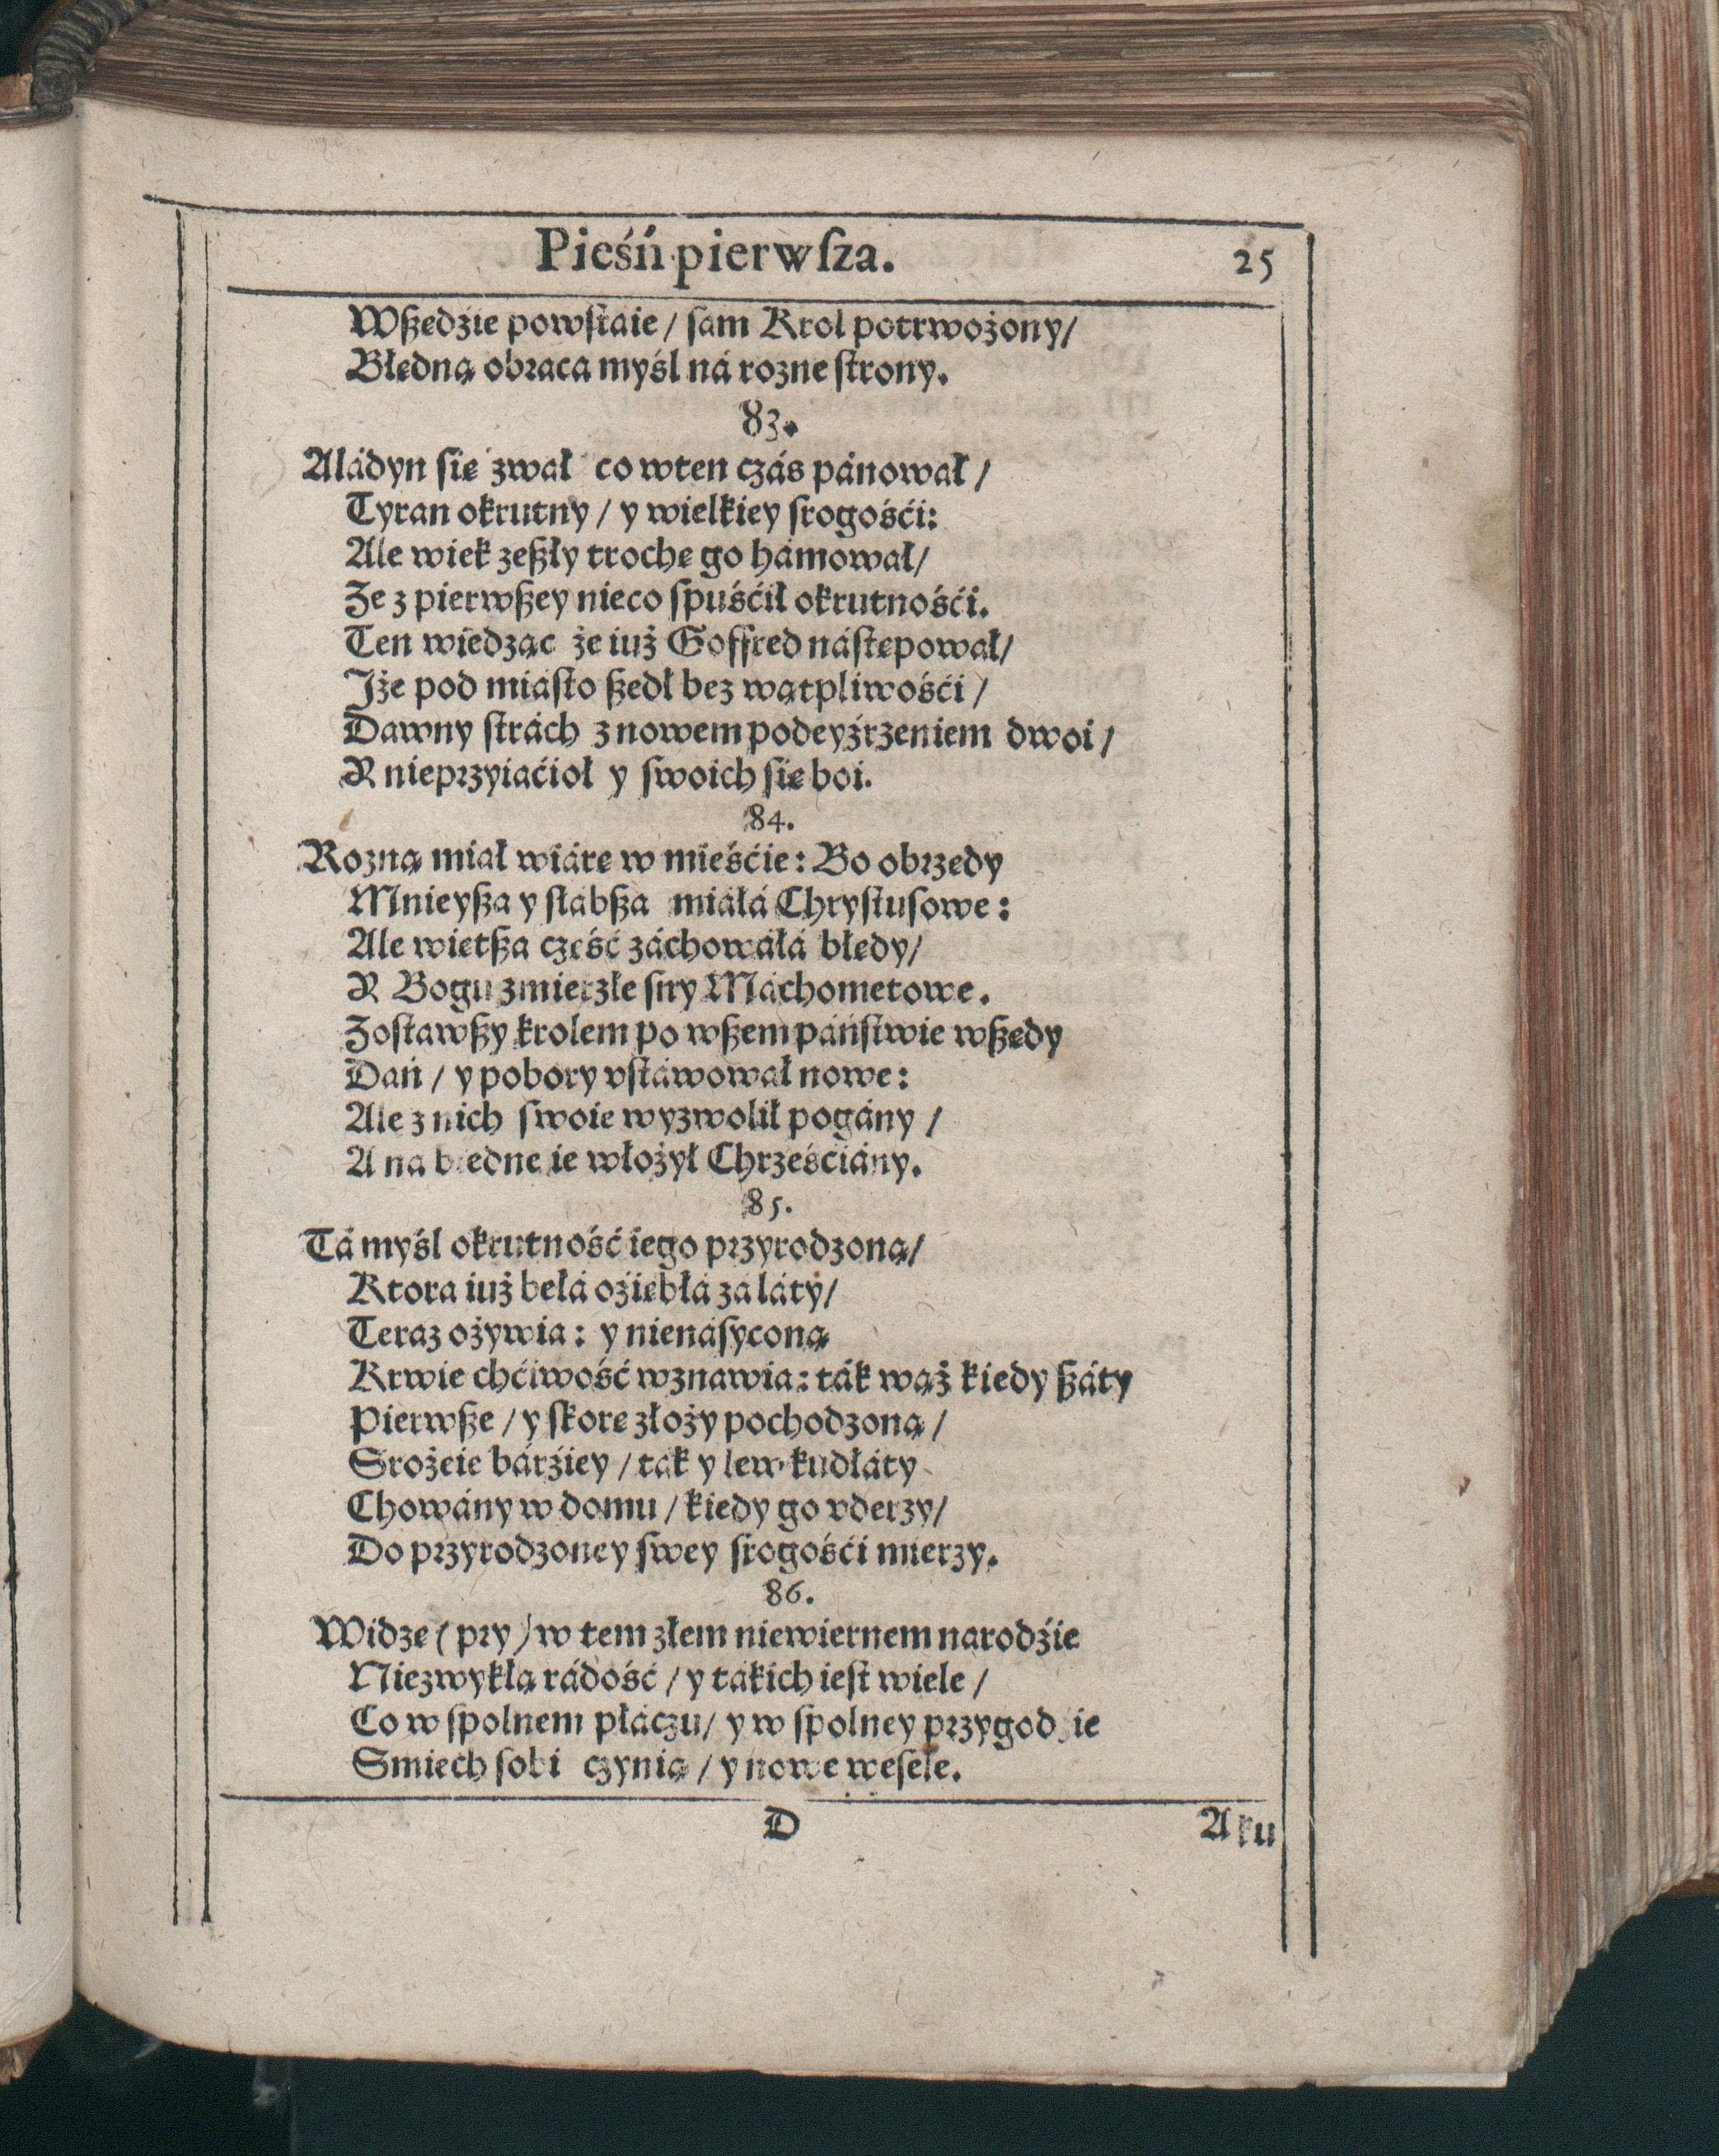 Pieśń pierwſza.
25
Wßędzie powſtáie / ſam Krol potrwożony/
Błędną obraca myśl ná rozne ſtrony.
83.
Aládyn ſię zwał co wten czás pánował /
Tyran okrutny / y wielkiey ſrogośći:
Ale wiek zeßły trochę go hámował/
Ze z pierwßey nieco ſpuśćił okrutnośći.
Ten wiedząc że iuż Goffred náſtępował/
Iże pod miáſto ßedł bez wątpliwośći /
Dawny ſtrách z nowem podeyźrzeniem dwoi /
Y nieprzyiaćioł y ſwoich ſię boi.
84.
Rozną miał wiárę w mieśćie: Bo obrzędy
Mnieyßa y słabßa miáłá Chryſtuſowe:
Ale więtßa część záchowáłá błędy/
Y Bogu zmierzłe ſny Máchometowe.
Zoſtawßy krolem po wßem páńſtwie wßędy
Dań / y pobory vſtáwował nowe:
Ale z nich ſwoie wyzwolił pogány /
A na biedne ie włożył Chrześćiány.
85.
Tá myśl okrutność iego przyrodzoną/
Ktora iuż beła oźiębłá zá láty/
Teraz ożywia: y nienáſyconą
Krwie chćiwość wznawia: ták wąż kiedy ßáty
Pierwße / y ſkorę złoży pochodzoną /
Srożeie bárźiey / ták y lew kudłáty
Chowány w domu / kiedy go vderzy/
Do przyrodzoney ſwey ſrogośći mierzy.
86.
Widzę (pry) w tem złem niewiernem narodźie
Niezwykłą rádość / y tákich ieſt wiele /
Co w ſpolnem płáczu/ y w ſpolney przygodzie
Smiech ſobi czynią / y nowe weſele.
D
Aku